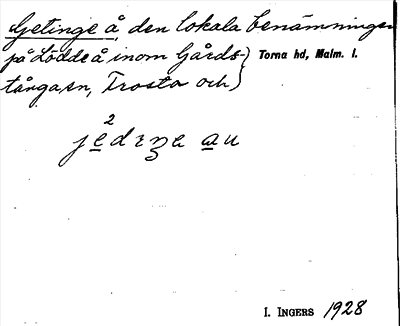 Getinge å, den lokala benämningen
på Löddeå inom Gårds-) Torna hd, Malm. l.
tånga sn, Trosta och)
2
jedɪŋe au
I. INGERS 1928